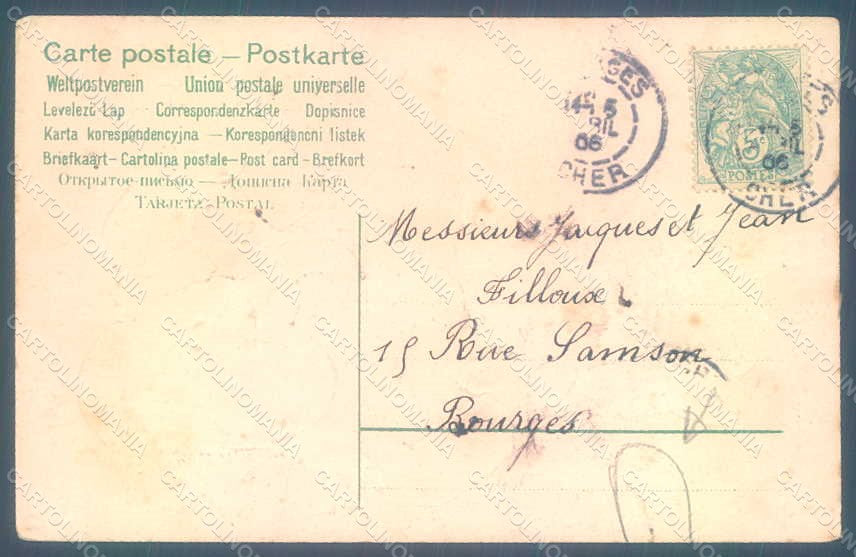 Carte postale – Postkarte
Weltpostverein Union postale universelle
Levelező-Lap Correspondenzkarte Dopisnice
Karta korespondencyjna – Korespondenční listek
Briefkaart – Cartolina postale – Post card – Brefkort
Открытое письмо – Дописна Карта
Tarjeta Postal
GES
5
06
CHER
5
POSTES
06
CHER
Messieurs Jaques et Jean
Filloux
15 Rue Samson
Bourges
CARTOLINOMANIA